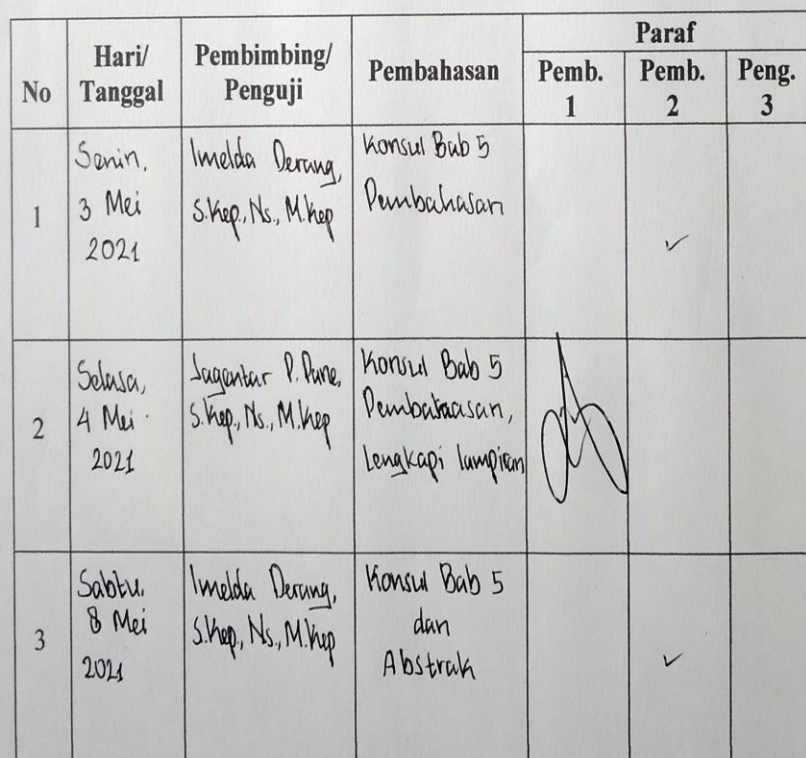 No
Hari/
Tanggal
Pembimbing/
Penguji
Pembahasan
Paraf
Pemb.
1
Pemb.
2
Peng.
3
1
Senin,
3 Mei
2021
Imelda Derang,
S.Kep., Ns., M.Kep
Konsul Bab 5
Pembahasan
2
Selasa,
4 Mei
2021
Jagentar P. Pane,
S.Kep., Ns., M.Kep
Konsul Bab 5
Lengkapi lampiran
3
Sabtu,
8 Mei
2021
Imelda Derang,
S.Kep., Ns., M.Kep
Konsul Bab 5
dan
Abstrak